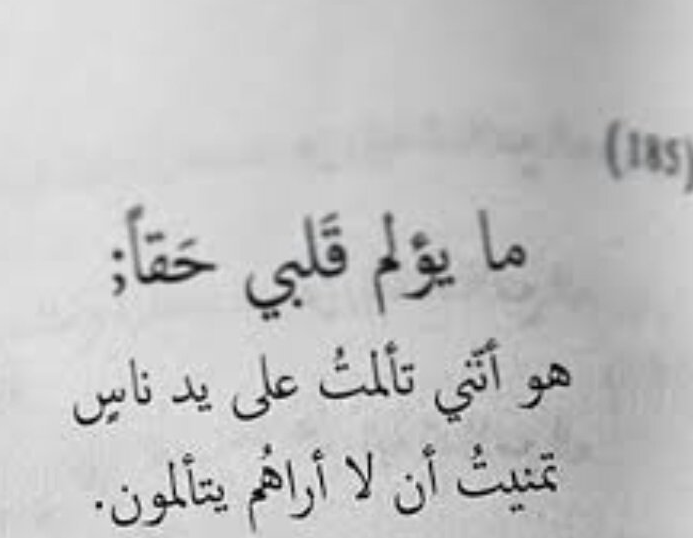 (185)
ما يؤلم قَلبي حَقاً;
هو أنّني تألمتُ على يد ناسٍ
تمنيتُ أن لا أراهُم يتألمون.